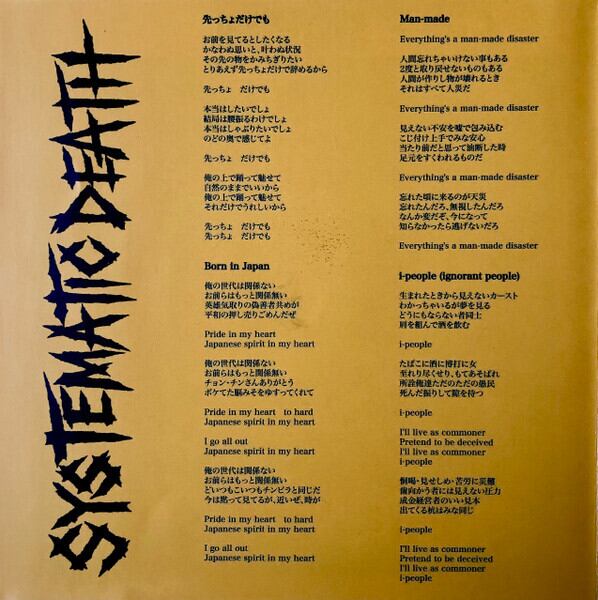 SYSTEMATIC DEATH
先っちょだけでも
お前を見てるとしたくなる
かなわぬ思いと、叶わぬ状況
その先の物をかみちぎりたい
とりあえず先っちょだけで辞めるから
先っちょ だけでも
本当はしたいでしょ
結局は腰振るわけでしょ
本当はしゃぶりたいでしょ
のどの奥で感じてよ
先っちょ だけでも
俺の上で踊って魅せて
自然のままでいいから
俺の上で踊って魅せて
それだけでうれしいから
先っちょ だけでも
先っちょ だけでも
Born in Japan
俺の世代は関係ない
お前らはもっと関係無い
英雄気取りの偽善者共めが
平和の押し売りごめんだぜ
Pride in my heart
Japanese spirit in my heart
俺の世代は関係ない
お前らはもっと関係無い
チョン・チンさんありがとう
ボケてた脳みそをゆすってくれて
Pride in my heart to hard
Japanese spirit in my heart
I go all out
Japanese spirit in my heart
俺の世代は関係ない
お前らはもっと関係無い
どいつもこいつもチンピラと同じだ
今は黙って見てるが、近いぜ、時が
Pride in my heart to hard
Japanese spirit in my heart
I go all out
Japanese spirit in my heart
Man-made
Everything's a man-made disaster
人間忘れちゃいけない事もある
2度と取り戻せないものもある
人間が作りし物が壊れるとき
それはすべて人災だ
Everything's a man-made disaster
見えない不安を嘘で包み込む
こじ付け上手でみな安心
当たり前だと思って油断した時
足元をすくわれるものだ
Everything's a man-made disaster
忘れた頃に来るのが天災
忘れたんだろ、無視したんだろ
なんか変だぞ、今になって
知らなかったら逃げないだろ
Everything's a man-made disaster
i-people (ignorant people)
生まれたときから見えないカースト
わかっちゃいるが夢を見る
どうにもならない者同士
肩を組んで酒を飲む
i-people
たばこに酒に博打に女
至れり尽くせり、もてあそばれ
所詮俺達ただのただの愚民
死んだ振りして隙を待つ
i-people
I'll live as commoner
Pretend to be deceived
I'll live as commoner
i-people
恫喝・見せしめ・苦労に災難
歯向かう者には見えない圧力
成金経営者のいい見本
出てくる杭はみな同じ
i-people
I'll live as commoner
Pretend to be deceived
I'll live as commoner
i-people